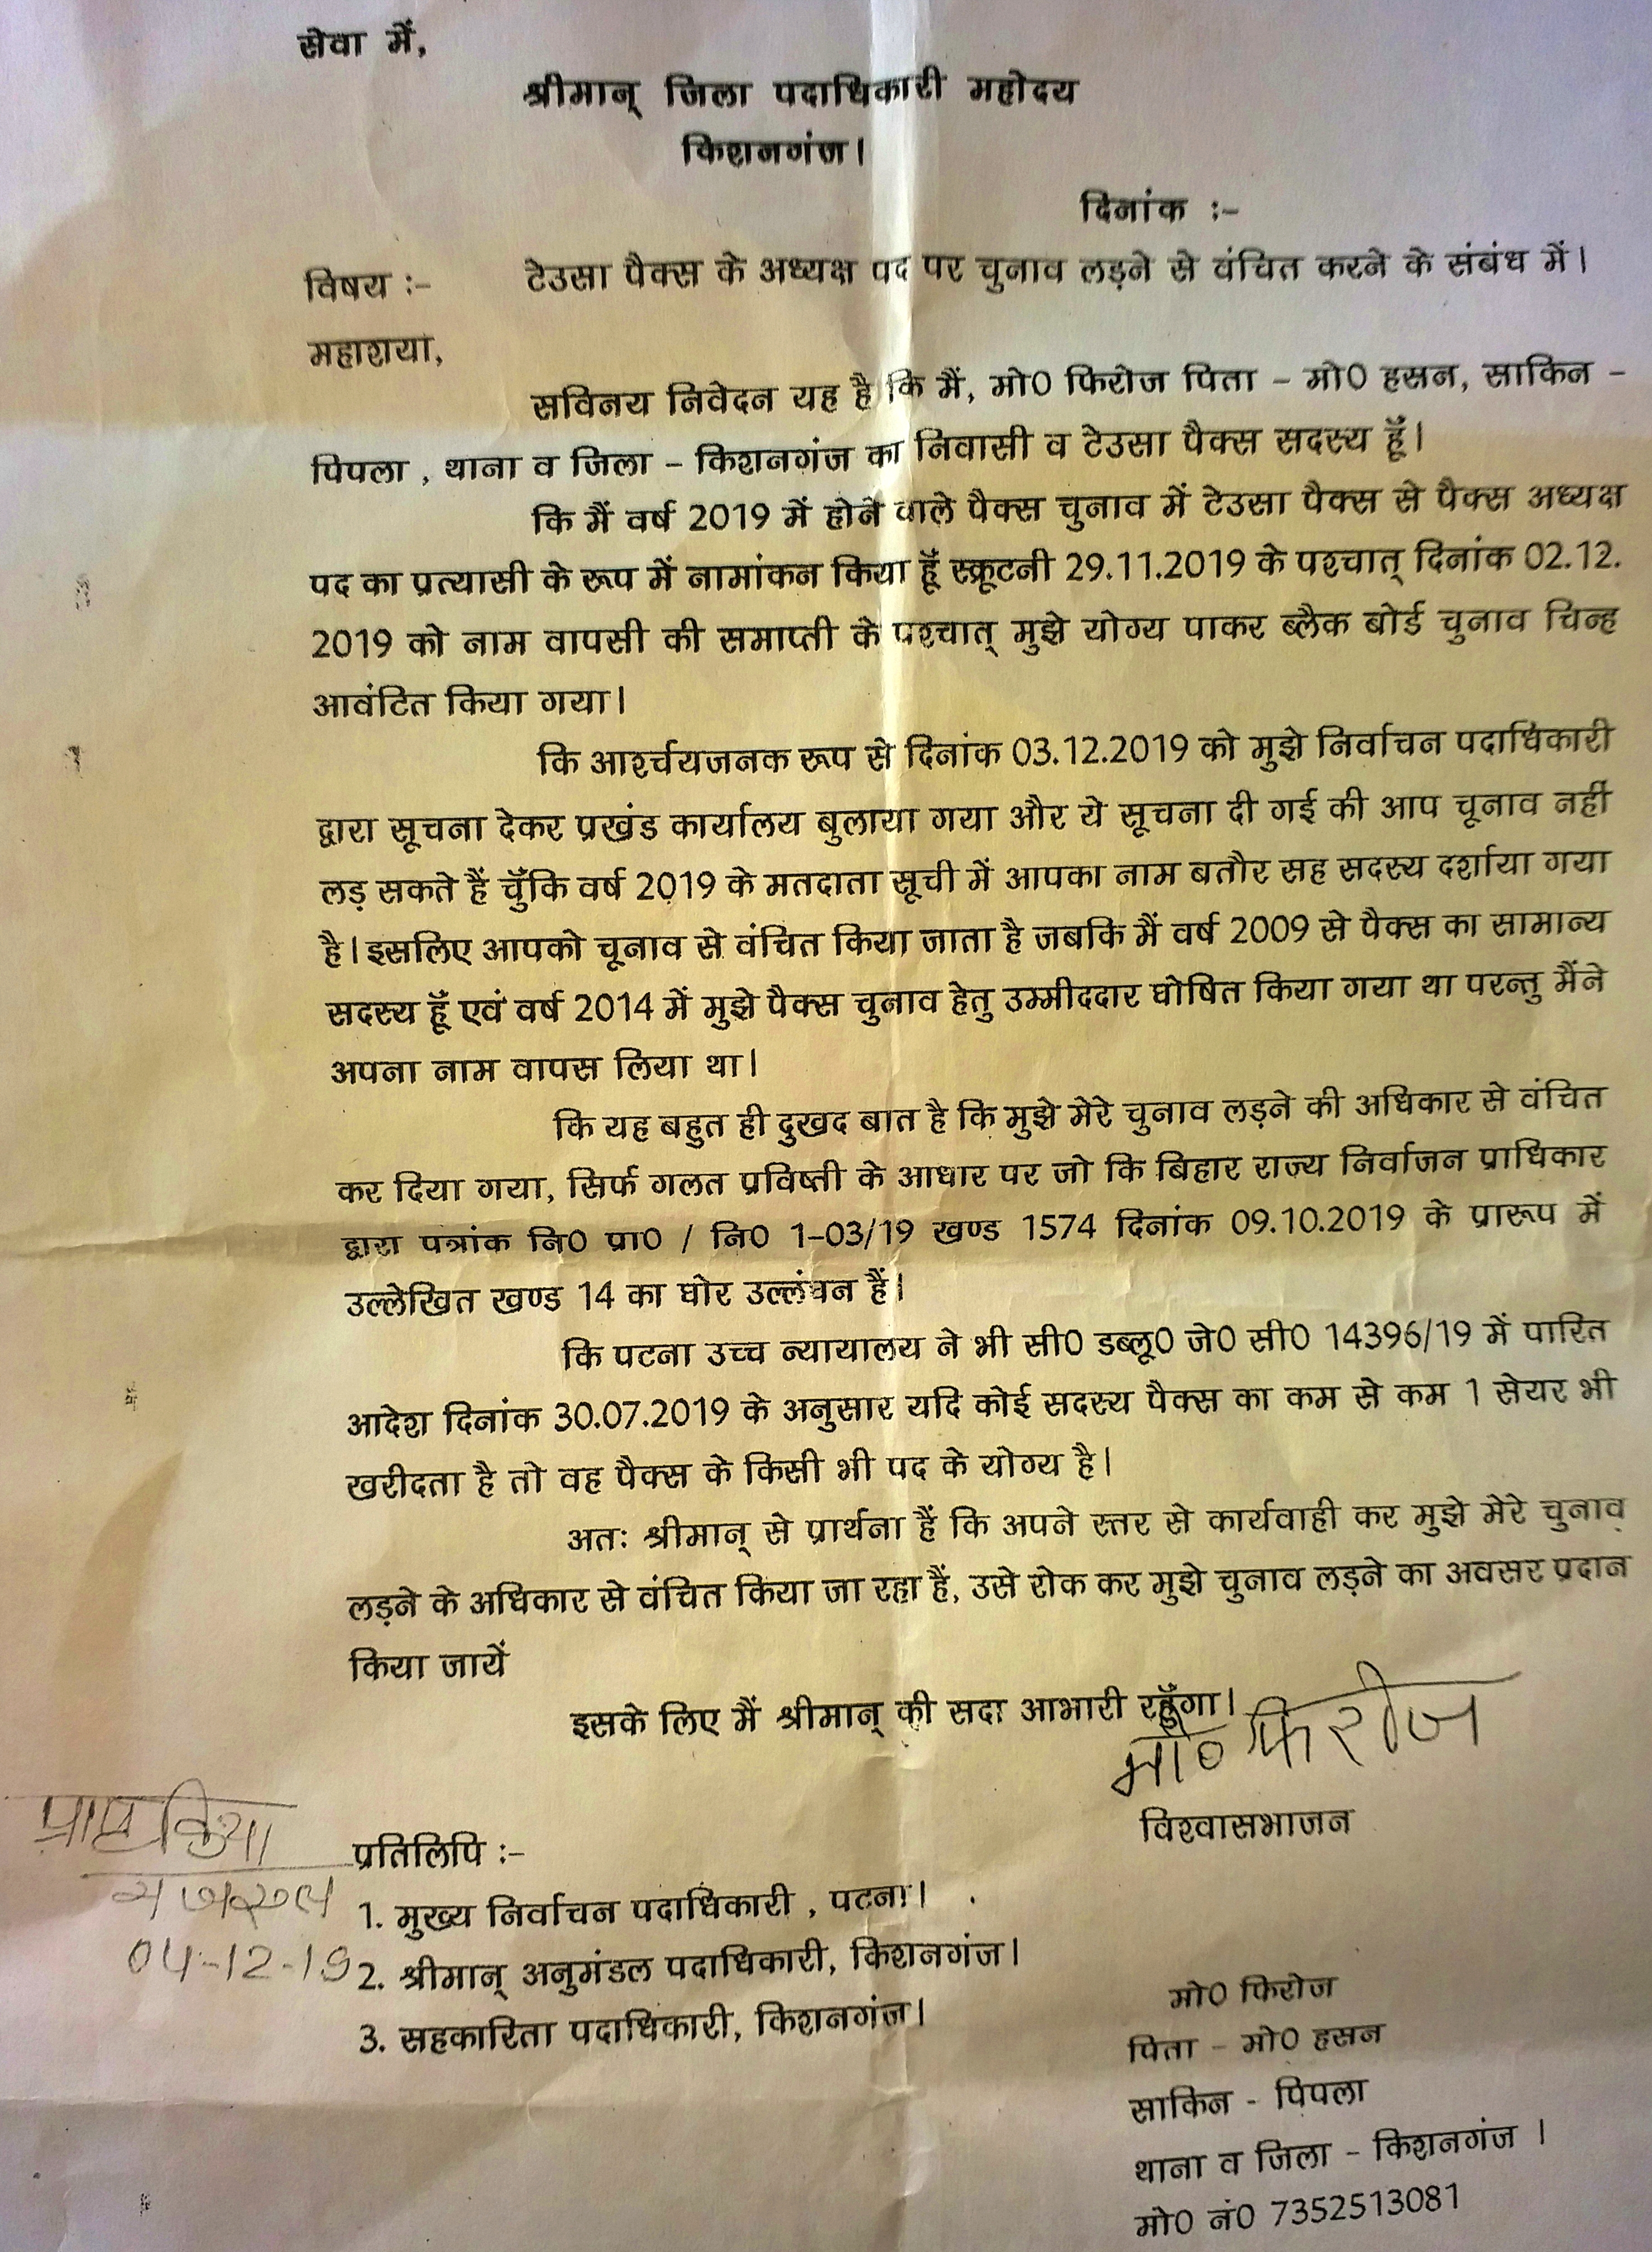 सेवा में,
श्रीमान् जिला पदाधिकारी महोदय
किशनगंज।
दिनांक :-
विषय :- टेउसा पैक्स के अध्यक्ष पद पर चुनाव लड़ने से वंचित करने के संबंध में।
महाशया,
सविनय निवेदन यह है कि मैं, मो0 फिरोज पिता - मो0 हसन, साकिन -
पिपला , थाना व जिला - किशनगंज का निवासी व टेउसा पैक्स सदस्य हूँ।
कि मैं वर्ष 2019 में होने वाले पैक्स चुनाव में टेउसा पैक्स से पैक्स अध्यक्ष
पद का प्रत्यासी के रूप में नामांकन किया हूँ स्क्रूटनी 29.11.2019 के पश्चात् दिनांक 02.12.
2019 को नाम वापसी की समाप्ती के पश्चात् मुझे योग्य पाकर ब्लैक बोर्ड चुनाव चिन्ह
आवंटित किया गया।
कि आर्श्चयजनक रूप से दिनांक 03.12.2019 को मुझे निर्वाचन पदाधिकारी
द्वारा सूचना देकर प्रखंड कार्यालय बुलाया गया और ये सूचना दी गई की आप चूनाव नहीं
लड़ सकते हैं चुँकि वर्ष 2019 के मतदाता सूची में आपका नाम बतौर सह सदस्य दर्शाया गया
है। इसलिए आपको चूनाव से वंचित किया जाता है जबकि मैं वर्ष 2009 से पैक्स का सामान्य
सदस्य हूँ एवं वर्ष 2014 में मुझे पैक्स चुनाव हेतु उम्मीददार घोषित किया गया था परन्तु मैंने
अपना नाम वापस लिया था।
कि यह बहुत ही दुखद बात है कि मुझे मेरे चुनाव लड़ने की अधिकार से वंचित
कर दिया गया, सिर्फ गलत प्रविष्ती के आधार पर जो कि बिहार राज्य निर्वाजन प्राधिकार
द्वारा पत्रांक नि0 प्रा0 / नि0 1-03/19 खण्ड 1574 दिनांक 09.10.2019 के प्रारूप में
उल्लेखित खण्ड 14 का घोर उल्लंघन हैं।
कि पटना उच्च न्यायालय ने भी सी0 डब्लू0 जे0 सी0 14396/19 में पारित
आदेश दिनांक 30.07.2019 के अनुसार यदि कोई सदस्य पैक्स का कम से कम 1 सेयर भी
खरीदता है तो वह पैक्स के किसी भी पद के योग्य है।
अतः श्रीमान् से प्रार्थना हैं कि अपने स्तर से कार्यवाही कर मुझे मेरे चुनाव
लड़ने के अधिकार से वंचित किया जा रहा हैं, उसे रोक कर मुझे चुनाव लड़ने का अवसर प्रदान
किया जायें
इसके लिए मैं श्रीमान् की सदा आभारी रहूँगा।
मो० फिरोज
विश्वासभाजन
प्राप्त किया
04-12-19
प्रतिलिपि :-
1. मुख्य निर्वाचन पदाधिकारी , पटना।
2. श्रीमान् अनुमंडल पदाधिकारी, किशनगंज।
3. सहकारिता पदाधिकारी, किशनगंज।
मो0 फिरोज
पिता - मो0 हसन
साकिन - पिपला
थाना व जिला - किशनगंज ।
मो0 नं0 7352513081